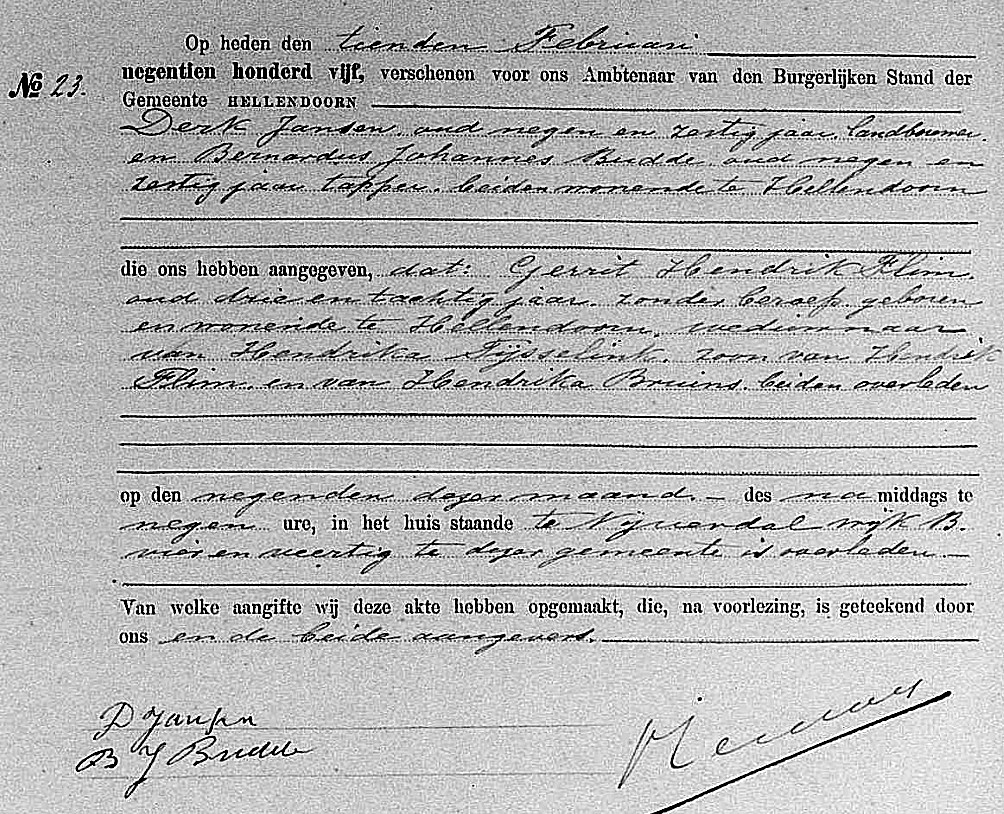 Op heden den tienden Februari
No 23.
negentien honderd vijf, verschenen voor ons Ambtenaar van den Burgerlijken Stand der
Gemeente HELLENDOORN
Derk Jansen, oud negen en zestig jaar, landbouwer
en Bernardus Johannes Budde, oud negen en
zestig jaar tapper, beiden wonende te Hellendoorn
die ons hebben aangegeven, dat: Gerrit Hendrik Flim,
oud drie en tachtig jaar, zonder beroep, geboren
en wonende te Hellendoorn, weduwnaar
van Hendrika Tijsselink, zoon van Hendrik
Flim, en van Hendrika Bruins, beiden overleden
op den negenden dezer maand. – des na middags te
negen ure, in het huis staande te Nijverdal wijk B.
vier en veertig te dezer gemeente is overleden. –
Van welke aangifte wij deze akte hebben opgemaakt, die, na voorlezing, is geteekend door
ons en de beide aangevers.
D Jansen
B J Budde